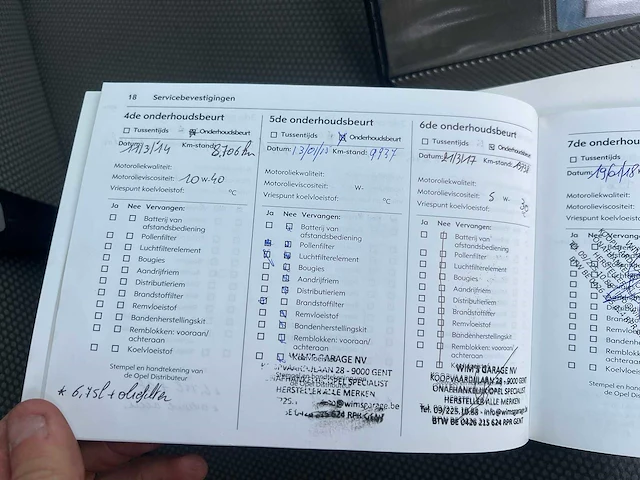 18 Servicebevestigingen
4de onderhoudsbeurt
Tussentijds Onderhoudsbeurt
Datum: 11/3/14 Km-stand: 8,706 km
Motoroliekwaliteit:
Motorolieviscositeit: 10 W-40
Vriespunt koelvloeistof: °C
Ja Nee Vervangen:
Batterij van
afstandsbediening
Pollenfilter
Luchtfilterelement
Bougies
Aandrijfriem
Distributieriem
Brandstoffilter
Remvloeistof
Bandenherstellingskit
Remblokken: vooraan/
achteraan
Koelvloeistof
Stempel en handtekening van
de Opel Distributeur.
* 6,75l + oliefilter
5de onderhoudsbeurt
Tussentijds Onderhoudsbeurt
Datum: 13/01/15 Km-stand: 9937
Motoroliekwaliteit:
Motorolieviscositeit: W-
Vriespunt koelvloeistof: °C
Ja Nee Vervangen:
Batterij van
afstandsbediening
Pollenfilter
Luchtfilterelement
Bougies
Aandrijfriem
Distributieriem
Brandstoffilter
Remvloeistof
Bandenherstellingskit
Remblokken: vooraan/
achteraan
WIM'S GARAGE NV
28 - 9000 GENT
OPEL SPECIALIST
HERSTELLER ALLE MERKEN
info@wimsgarage.be
BE 0426 215 624 RPR GENT
6de onderhoudsbeurt
Tussentijds Onderhoudsbeurt
Datum: 21/3/17 Km-stand:
Motoroliekwaliteit:
Motorolieviscositeit: 5 W- 30
Vriespunt koelvloeistof: °C
Ja Nee Vervangen:
Batterij van
afstandsbediening
Pollenfilter
Luchtfilterelement
Bougies
Aandrijfriem
Distributieriem
Brandstoffilter
Remvloeistof
Bandenherstellingskit
Remblokken: vooraan/
achteraan
Koelvloeistof
WIM'S GARAGE NV
KOOPVAARDIJLAAN 28 - 9000 GENT
ONAFHANKELIJK OPEL SPECIALIST
HERSTELLER ALLE MERKEN
Tel. 09/225.10.88 - info@wimsgarage.be
BTW BE 0426 215 624 RPR GENT
7de onderhoudsbeurt
Tussentijds
Datum: 19/01/18
Motoroliekwaliteit:
Motorolieviscositeit:
Vriespunt koelvloeistof:
Ja Nee
Stempel en handtekening
de Opel Distributeur